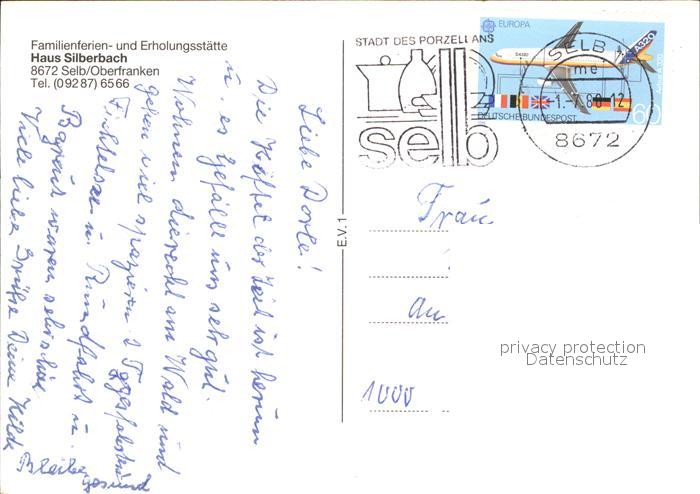 Familienferien- und Erholungsstätte
Haus Silberbach
8672 Selb/Oberfranken
Tel. (0 92 87) 65 66
Liebe Dorle!
Die Hälfte der Zeit ist herum
u. es gefällt uns sehr gut.
Wohnen direckt am Wald und
gehen viel spazieren 2 Tagesfahrten
Fichtelsee u. Rundfahrt n.
Bayreut waren sehr schön
Viele liebe Grüße Deine Hilde
Bleibe gesund
E.V.1
STADT DES PORZELLANS
selb
EUROPA
A320
DEUTSCHE BUNDESPOST
60
SELB
me
-1.-7.88.12
8672
Frau
An
1000
privacy protection
Datenschutz